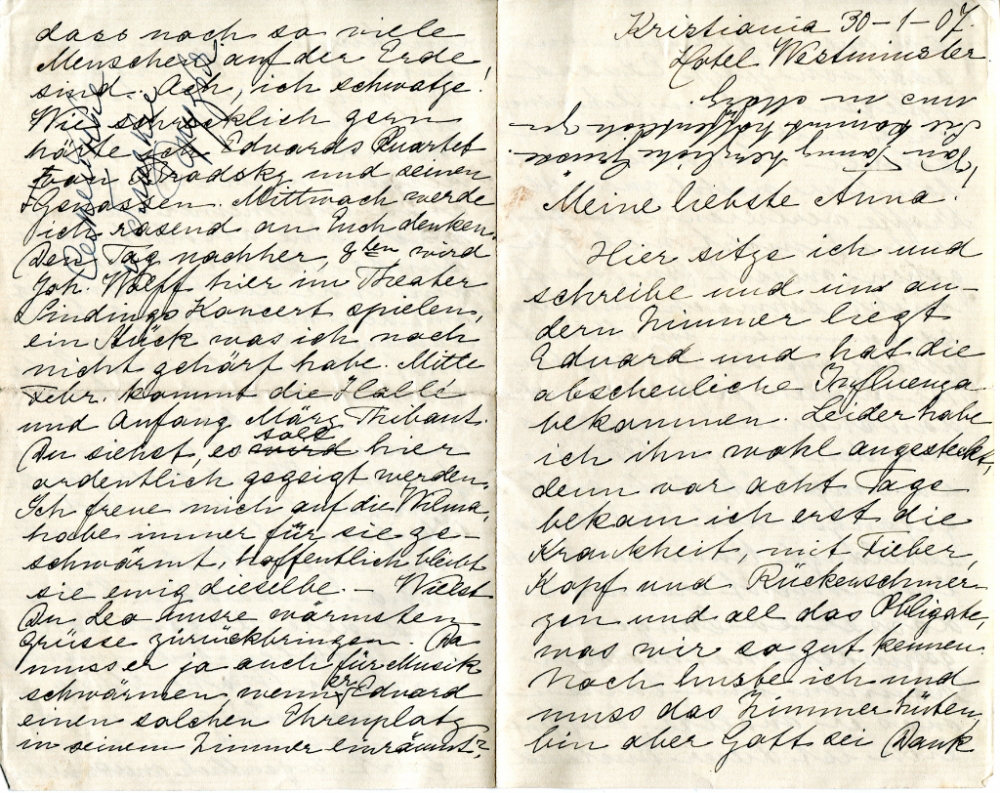 Kristiania 30-1-07.
Hotel Westminster
Meine liebste Anna!
Hier sitze ich und
schreibe und im an-
dern Zimmer liegt
Edvard und hat die
abscheuliche Influenza
bekommen. Leider habe
ich ihn wohl angesteckt,
denn vor acht Tage
bekam ich erst die
Krankheit, mit Fieber,
Kopf und Rückenschmer-
zen und all das Obligate,
was wir so gut kennen.
Noch huste ich und
muss das Zimmer hüten,
bin aber Gott sei Dank
dass noch so viele
Menschen auf der Erde
sind. Ach, ich schwatze!
Wie schrecklich gern
hörte Edvards Quartet
von Bradsky und seinen
Genossen. Mittwoch werde
ich rasend an Euch denken.
Den Tag nachher, 7ten wird
Joh. Wolff hier im Theater
Sindings Koncert spielen,
ein Stück was ich noch
nicht gehört habe. Mitte
Febr. kommt die Hallé
und Anfang März Thibaut.
Du siehst, es wird soll hier
ordentlich gegeigt werden.
Ich freue mich auf die Wilma,
habe immer für sie ge-
schwärmt, hoffentlich bleibt
sie ewig dieselbe. – Willst
Du Leo unsre wärmsten
Grüsse zurückbringen. Da
muss er ja auch für Musik
schwärmen wenn er Edvard
einen solchen Ehrenplatz
in seinem Zimmer einräumt?